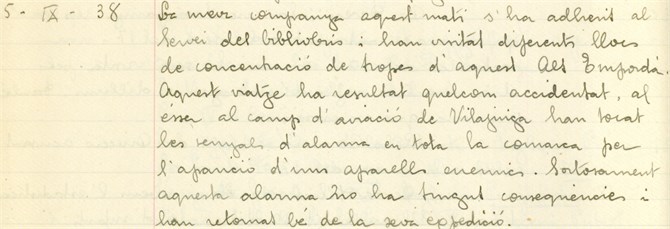 5 - IX - 38 La meva companya aquest mati s'ha adherit al
Servei del bibliobús i han visitat diferents llocs
de concentració de tropes d'aquest Alt Empordà.
Aquest viatge ha resultat quelcom accidentat, al
ésser al camp d'aviació de Vilajuiga han tocat
les senyals d'alarma en tota la comarca per
l'aparició d'uns aparells enemics. Sortosament
aquesta alarma no ha tingut conseqüencies i
han retornat bé de la seva expedició.